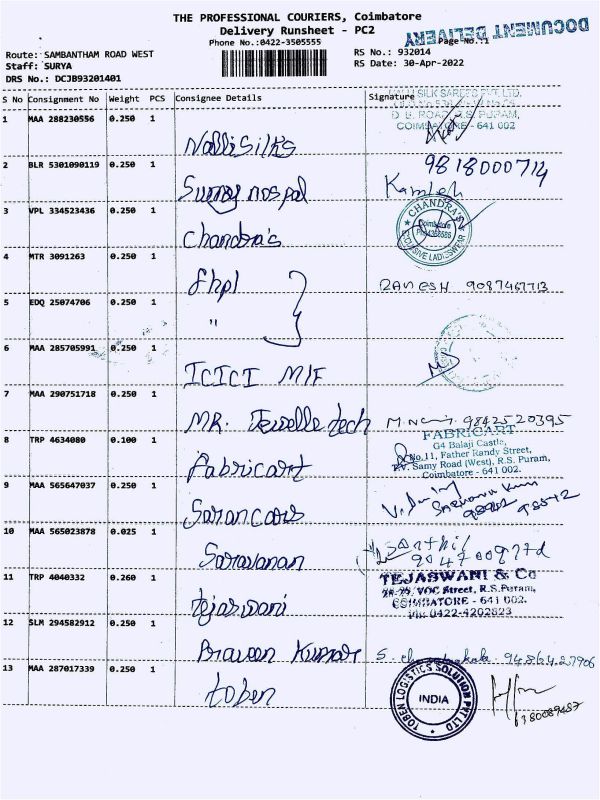 THE PROFESSIONAL COURIERS, Coimbatore
Delivery Runsheet - PC2
Phone No.:0422-3505555
DOCUMENT DELIVERY
Page No.:1
Route: SAMBANTHAM ROAD WEST
RS No.: 932014
Staff: SURYA
RS Date: 30-Apr-2022
DRS No.: DCJB93201401
S No Consignment No Weight PCS Consignee Details Signature
SILK SAREES PVT LTD,
D. B. ROAD, R.S. PURAM,
COIMBATORE - 641 002
1 MAA 288230556 0.250 1
Nalli Silks
2 BLR 5301090119 0.250 1
9818000714
Kamlesh
3 VPL 334523436 0.250 1
Chandra's
CHANDRA'S
Coimbatore
EXCLUSIVE LADIESWEAR
4 MTR 3091263 0.250 1
fhpl
RAMESH 9087467713
5 EDQ 25074706 0.250 1
"
6 MAA 285705991 0.250 1
ICICI M/F
7 MAA 290751718 0.250 1
MR. Jewelle tech
9842520395
8 TRP 4634080 0.100 1
Fabricart
FABRICART
G4 Balaji Castle,
No.11, Father Randy Street,
T.V. Samy Road (West), R.S. Puram,
Coimbatore - 641 002.
9 MAA 565647037 0.250 1
Saran Cars
10 MAA 565023878 0.025 1
Saravanan
Santhi
11 TRP 4040332 0.260 1
tejaswani
TEJASWANI & Co
VOC Street, R.S.Puram,
COIMBATORE - 641 002.
Ph: 0422-4202823
12 SLM 294582912 0.250 1
Praveen Kumar
9486427906
13 MAA 287017339 0.250 1
toben
TOBEN LOGISTICS SOLUTION PVT LTD
INDIA